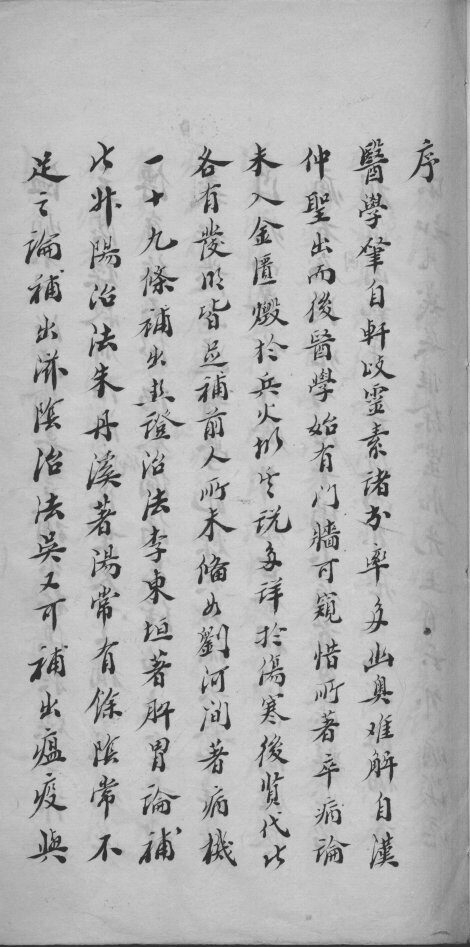 序
醫學肇自軒岐靈素諸書率多幽奥难解自漢
仲聖出而後醫學始有门牆可窺惜所著卒病論
未入金匱燬於兵火故其说多詳於傷寒後贤代出
各有發明皆足補前人所未俻如劉河间著病機
一十九條補出熱證治法李東垣著脾胃論補
出升陽治法朱丹溪著陽常有餘陰常不
足之論補出滋陰治法吳又可補出瘟疫與